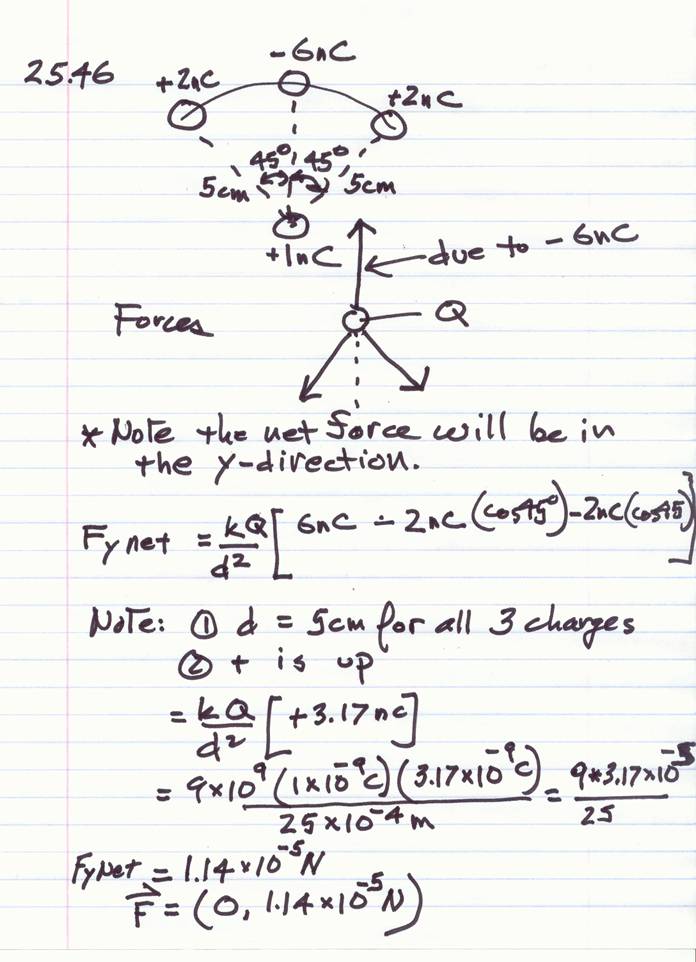 25.46
-6nC
+2nC
+2nC
45° 45°
5cm 5cm
+1nC
due to -6nC
Forces
Q
* Note the net force will be in
the y-direction.
Fy net = kQ/d² [ 6nC - 2nC (cos45°) - 2nC (cos45) ]
Note: ① d = 5cm for all 3 charges
② + is up
= kQ/d² [ +3.17 nC ]
= 9×10⁹ (1×10⁻⁹C) (3.17×10⁻⁹C) / 25×10⁻⁴ m = 9*3.17×10⁻⁵ / 25
FyNet = 1.14×10⁻⁵ N
F⃗ = (0, 1.14×10⁻⁵ N)